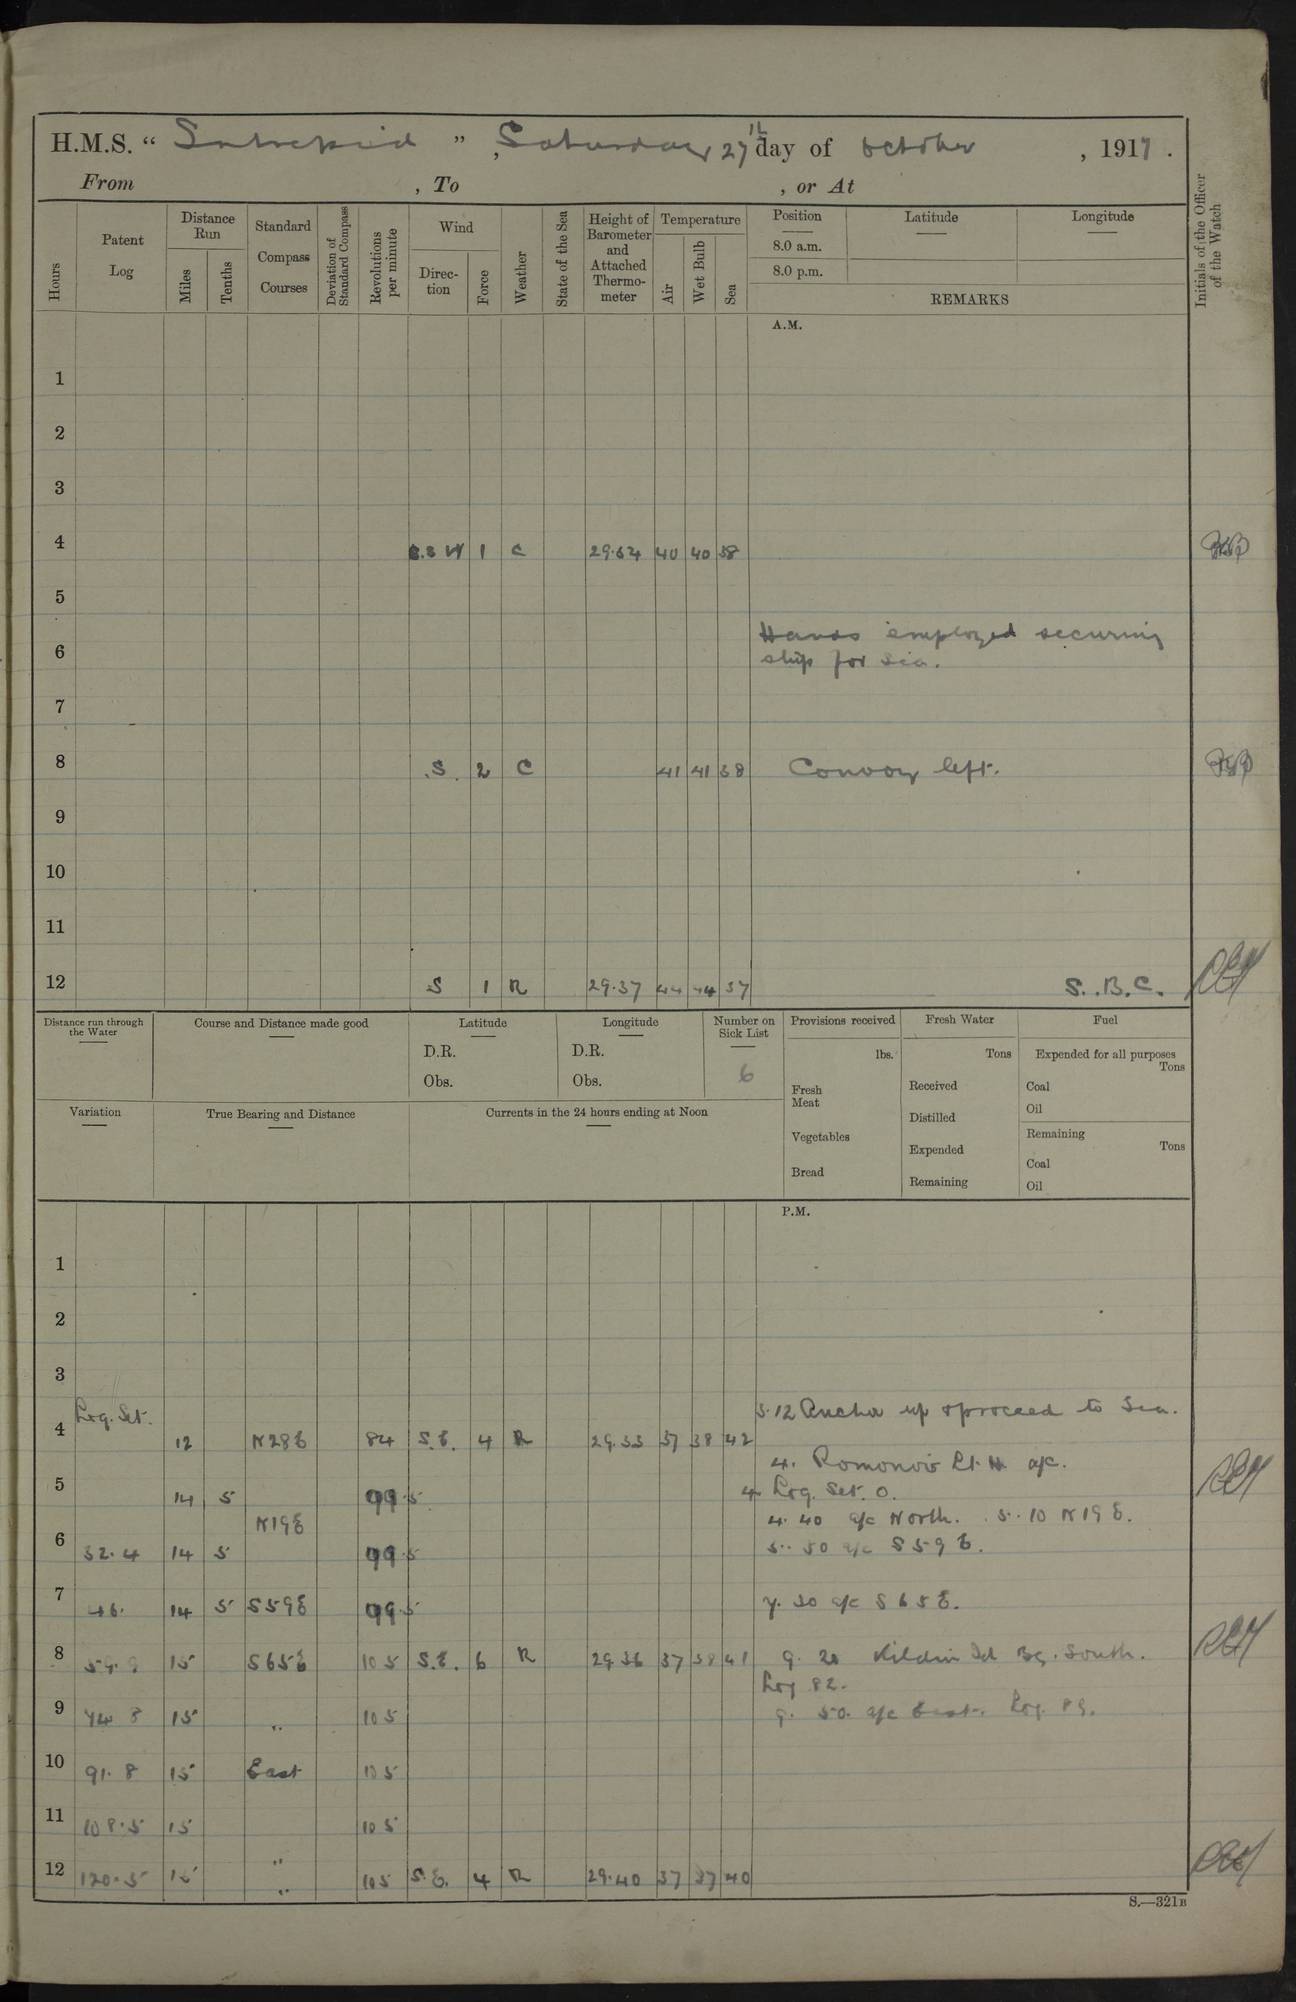 H.M.S. “ Intrepid ” , Saturday 27th day of October , 1917 .
From , To , or At
Hours
Patent Log
Distance Run
Miles
Tenths
Standard Compass Courses
Deviation of Standard Compass
Revolutions per minute
Wind
Direction
Force
Weather
State of the Sea
Height of Barometer and Attached Thermometer
Temperature
Air
Wet Bulb
Sea
Position
8.0 a.m.
8.0 p.m.
Latitude
Longitude
REMARKS
Initials of the Officer of the Watch
A.M.
1
2
3
4 S.S W 1 C 29.64 40 40 38
5
Hands employed securing
6 ship for sea.
7
8 S. 2 C 41 41 38 Convoy left.
9
10
11
12 S 1 R 29.37 44 44 37 S.B.C.
Distance run through the Water
Course and Distance made good
Latitude
D.R.
Obs.
Longitude
D.R.
Obs.
Number on Sick List
6
Provisions received
lbs.
Fresh Meat
Vegetables
Bread
Fresh Water
Tons
Received
Distilled
Expended
Remaining
Fuel
Expended for all purposes
Tons
Coal
Oil
Remaining
Tons
Coal
Oil
Variation
True Bearing and Distance
Currents in the 24 hours ending at Noon
P.M.
1
2
3
Log. Set. 3.12 Anchor up & proceed to Sea.
4 12 N28E 84 S.E. 4 R 29.33 37 38 42
4. Romonov Lt. H a/c.
5 14 5 99.5 4 Log. Set. 0.
N19E 4.40 a/c North. 5.10 N19E.
6 32.4 14 5 99.5 5.50 a/c S59E.
7 46. 14 5 S59E 99.5 7.30 a/c S65E.
8 59.9 15 S65E 105 S.E. 6 R 29.36 37 38 41 9.20 Kildin Id Bg. South.
Log 82.
9 74 8 15 „ 105 9.50. a/c East. Log. 89.
10 91.8 15 East 105
11 108.5 15 „ 105
12 120.5 15 „ 105 S.E. 4 R 29.40 37 37 40
S.—321B